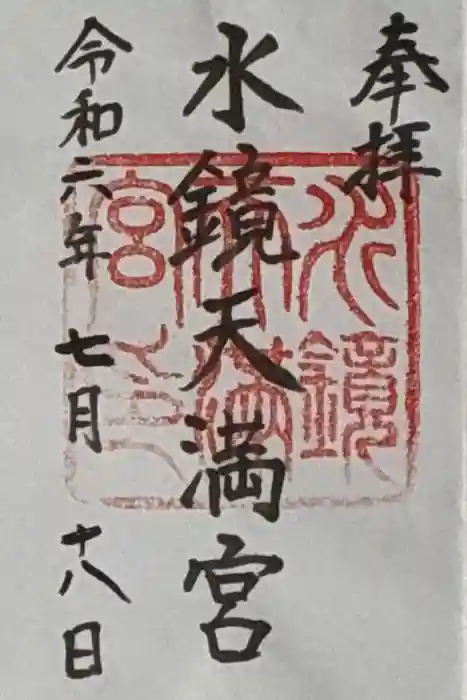 奉拝
水鏡天満宮
令和六年七月十八日
水鏡
天満
宮之印